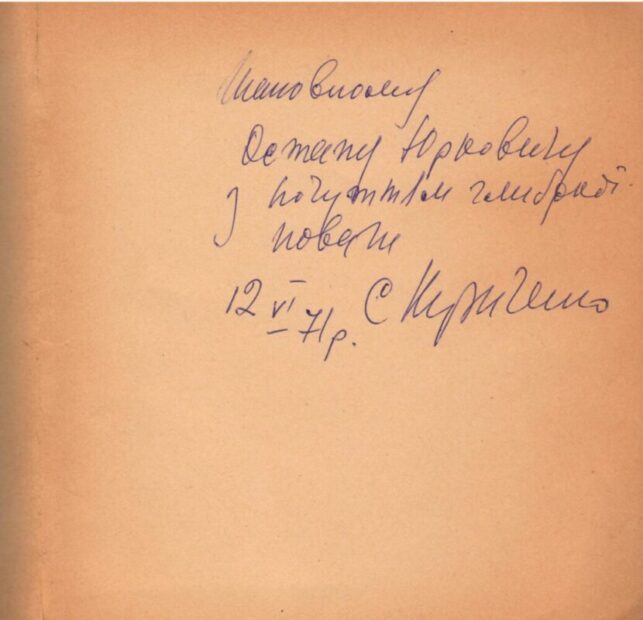 Шановному
Остапу Юрковичу
з почуттям глибокої
поваги
12 VI 71р. С Кириченко